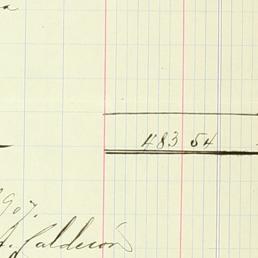 483 54
907.
A. Calderón